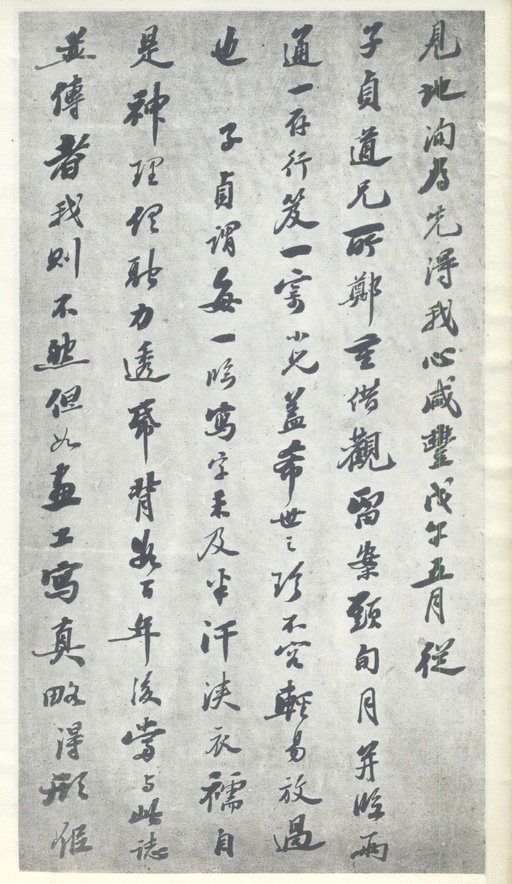 見地洵為先得我心咸豐戊午五月從
子貞道兄所鄭重借觀留案頭旬月并臨兩
通一存行笈一寄小兒蓋希世之珍不容輕易放過
也 子貞謂每一臨寫字未及半汗浹衣襦自
是神理組融力透帋背数百年後當與此誌
並傳者我則不然但如畫工寫真略得形似